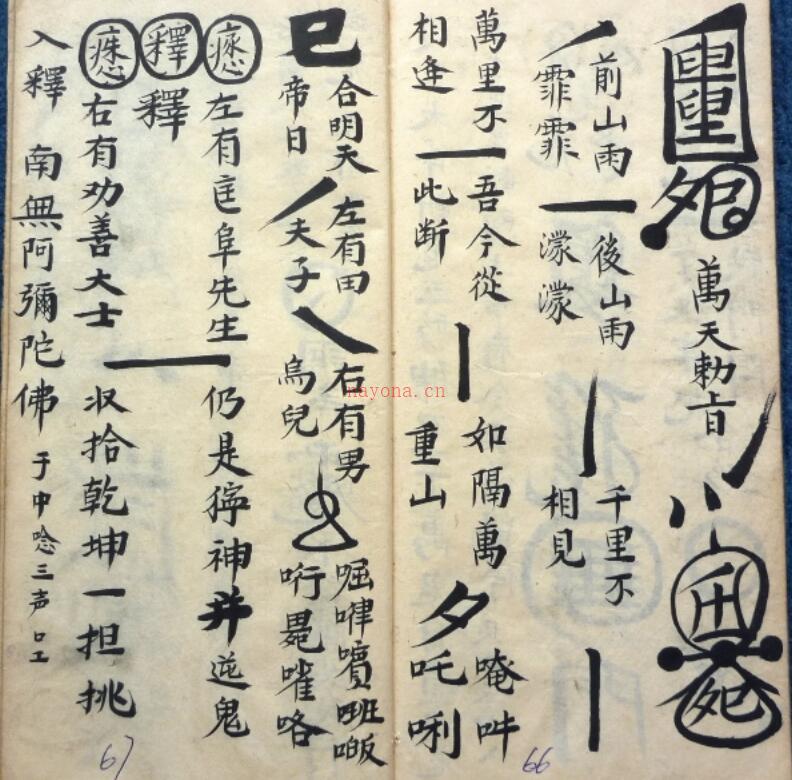 萬天勅旨
前山雨霏霏
後山雨濛濛
千里不相見
萬里不相逢
吾今從此断
如隔萬重山
唵吽吒唎
66
巳
合明天帝日
左有田夫子
右有男烏兒
左有匡阜先生仍是獰神并逆鬼
釋 釋
右有劝善大士収拾乾坤一担挑
入釋 南無阿彌陀佛 于中唸三声
67
nayona.cn